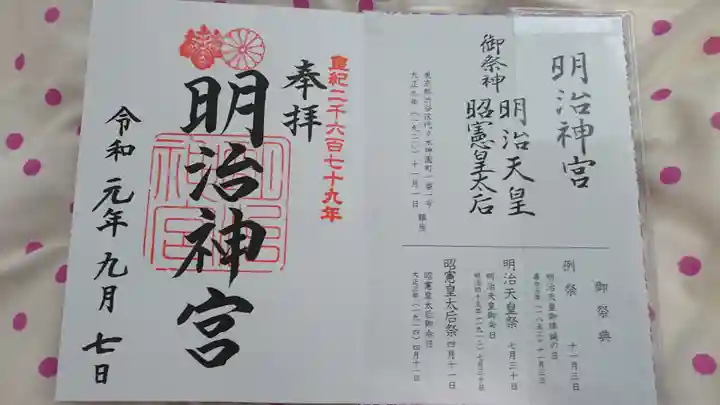 明治神宮
御祭神
明治天皇
昭憲皇太后
東京都渋谷区代々木神園町一番一号
大正九年(一九二〇)十一月一日 鎮座
御祭典
例祭 十一月三日
明治天皇御降誕の日
嘉永五年(一八五二)十一月三日
明治天皇祭 七月三十日
明治天皇御命日
明治四十五年(一九一二)七月三十日
昭憲皇太后祭 四月十一日
昭憲皇太后御命日
大正三年(一九一四)四月十一日
皇紀二千六百七十九年
奉拝
明治神宮
明治神宮
令和元年九月七日